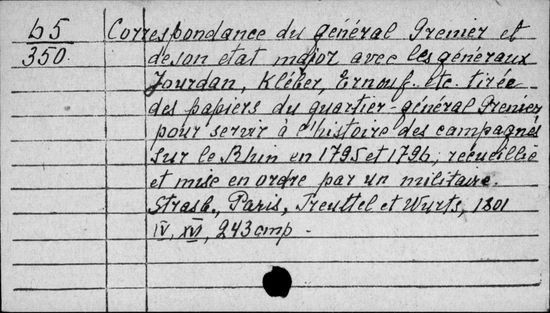 b5
350
Correspondance du général Grenier et
de son etat major avec les généraux
Jourdan, Kléber, Ernouf. etc. tirée
des papiers du quartier-général Grenier
pour servir à l'histoire des campagnes
sur le Rhin en 1795 et 1796, recueillie
et mise en ordre par un militaire.
Strasb., Paris, Treuttel et Wurts, 1801
IV, XVI, 243 cmp.